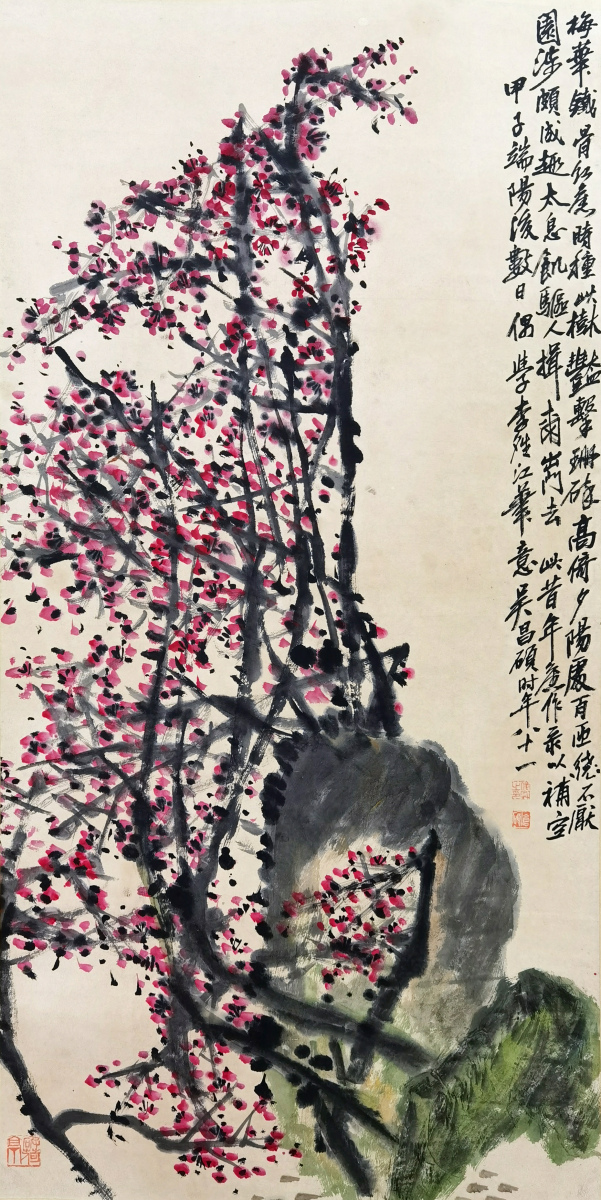 梅華鐵骨紅舊時種此樹豔擊珊碎高倚夕陽處百匝繞不厭
園涉頗成趣太息飢驅人揖爾出門去 此昔年舊作录以補空
甲子端陽後數日偶學李晴江筆意吴昌碩时年八十一